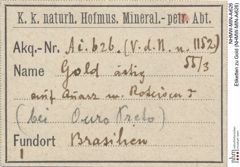 K. k. naturh. Hofmus. Mineral.-petr. Abt.
Akq.-Nr. A.i.626. (V.d.N.u. 1152)
55/3
Name Gold ästig
auf Quarz u. Roteisen
(bei Ouro Preto)
Fundort Brasilien
Etiketten zu Gold (NHMW-MIN-A-626)
NHMW-MIN-A-626